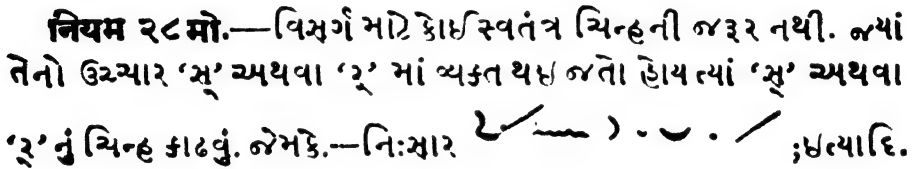 નિયમ ૨૮મો.—વિસર્ગ માટે કોઈ સ્વતંત્ર ચિન્હની જરૂર નથી. જ્યાં
તેનો ઉચ્ચાર ‘સ્’ અથવા ‘ર્’ માં વ્યક્ત થઇ જતો હોય ત્યાં ‘સ્’ અથવા
‘ર્’નું ચિન્હ કાઢવું. જેમકે.—નિઃસાર ;ઇત્યાદિ.